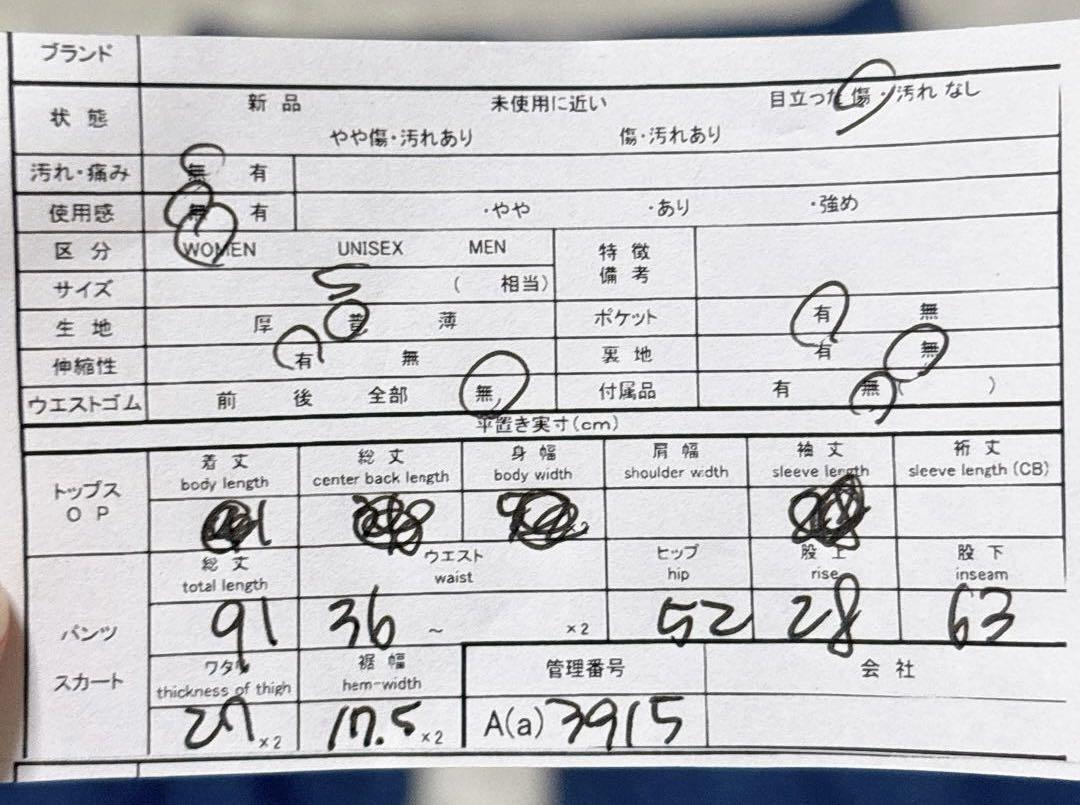 ブランド
状態 新品 未使用に近い 目立った傷・汚れ なし
やや傷・汚れあり 傷・汚れあり
汚れ・痛み 無 有
使用感 無 有 ・やや ・あり ・強め
区分 WOMEN UNISEX MEN 特徴
備考
サイズ S ( 相当)
生地 厚 普 薄 ポケット 有 無
伸縮性 有 無 裏地 有 無
ウエストゴム 前 後 全部 無 付属品 有 無 ( )
平置き実寸(cm)
着丈 総丈 身幅 肩幅 袖丈 裄丈
body length center back length body width shoulder width sleeve length sleeve length (CB)
トップス
OP
総丈 ウエスト ヒップ 股上 股下
total length waist hip rise inseam
パンツ 91 36 ~ ×2 52 28 63
スカート ワタリ 裾幅 管理番号 会社
thickness of thigh hem-width
27 ×2 17.5 ×2 A(a) 3915